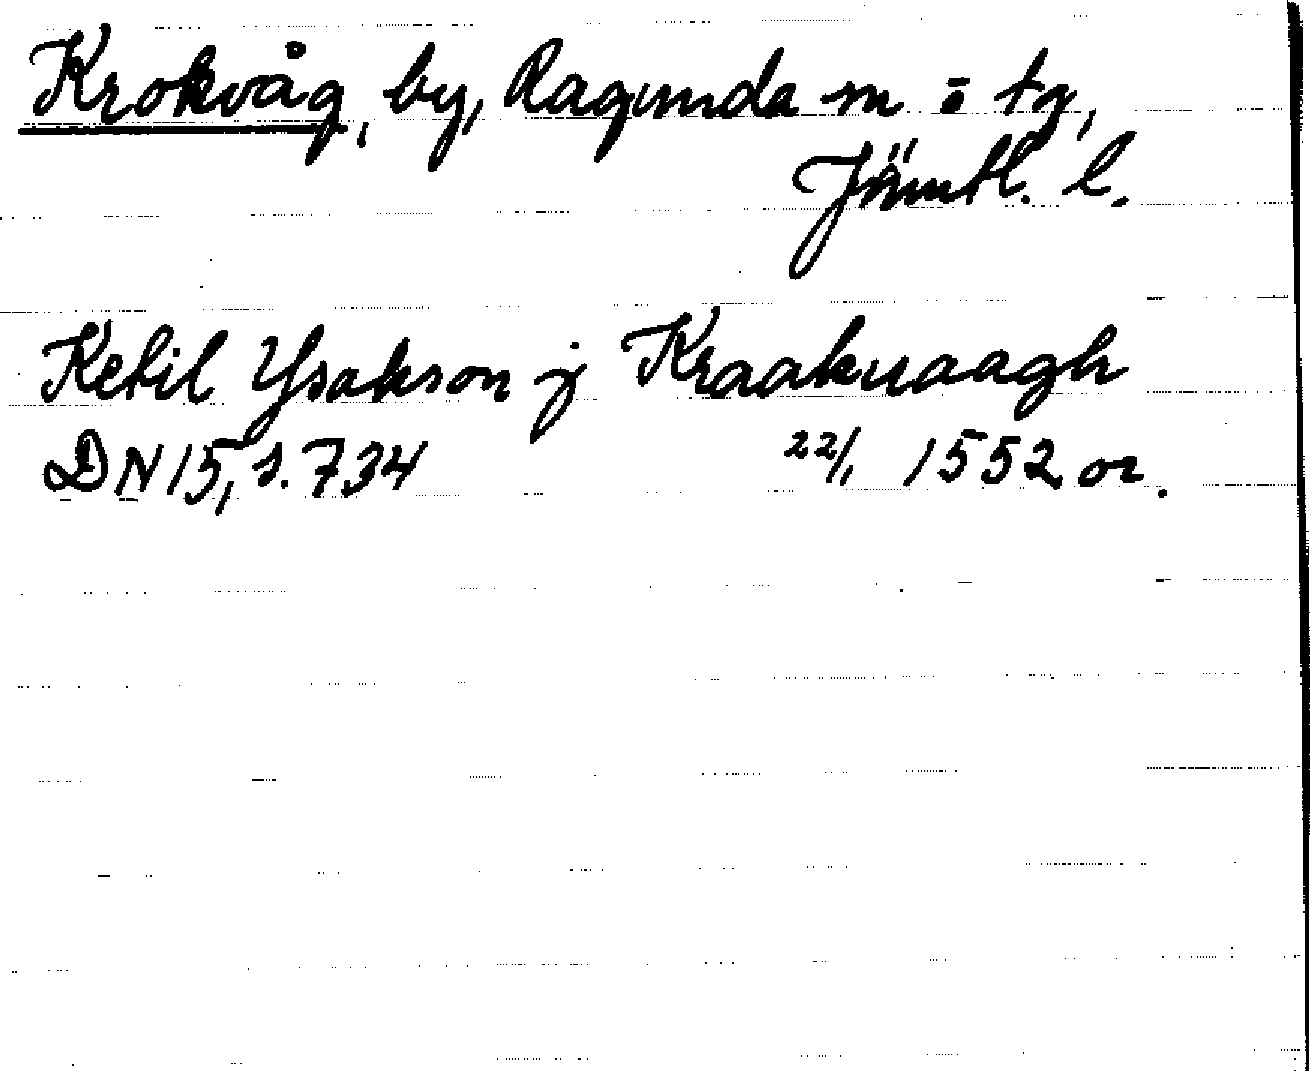 Krokvåg, by, Ragunda sn o tg,
Jämtl. l.
Ketil Ysakson j Kraakuaagh
DN 15, s. 734 22/1 1552 or.